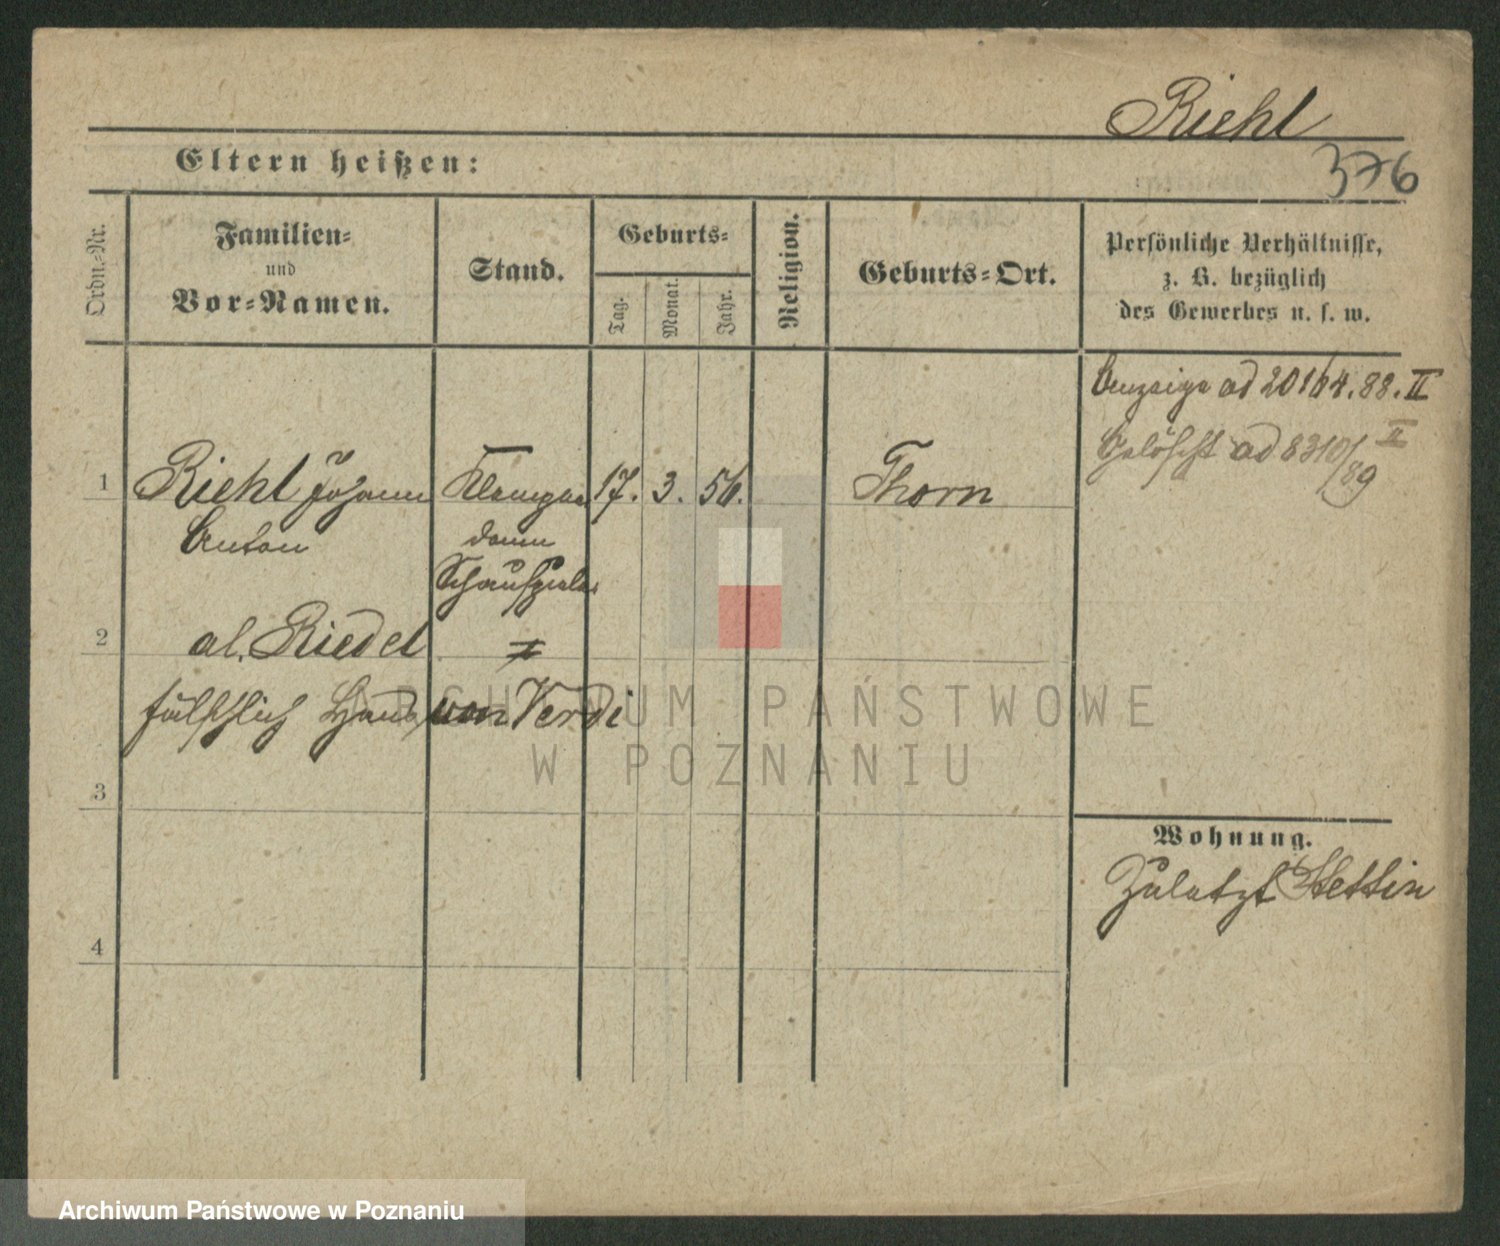 Riehl
376
Eltern heißen:
Ordn.-Nr.
Familien-
und
Vor-Namen.
Stand.
Geburts-
Tag.
Monat.
Jahr.
Religion.
Geburts-Ort.
Persönliche Verhältnisse,
z. B. bezüglich
des Gewerbes u. s. w.
Anzeige ad 20164.88.II
Gelöscht ad 8310/89 II
1 Riehl Johann Klempner 17. 3. 56. Thorn
Anton dann
Schauspieler
2 al. Riedel
fälschlich Hans von Verdi
3
Wohnung.
Zuletzt Stettin
4
ARCHIWUM PAŃSTWOWE
W POZNANIU
Archiwum Państwowe w Poznaniu